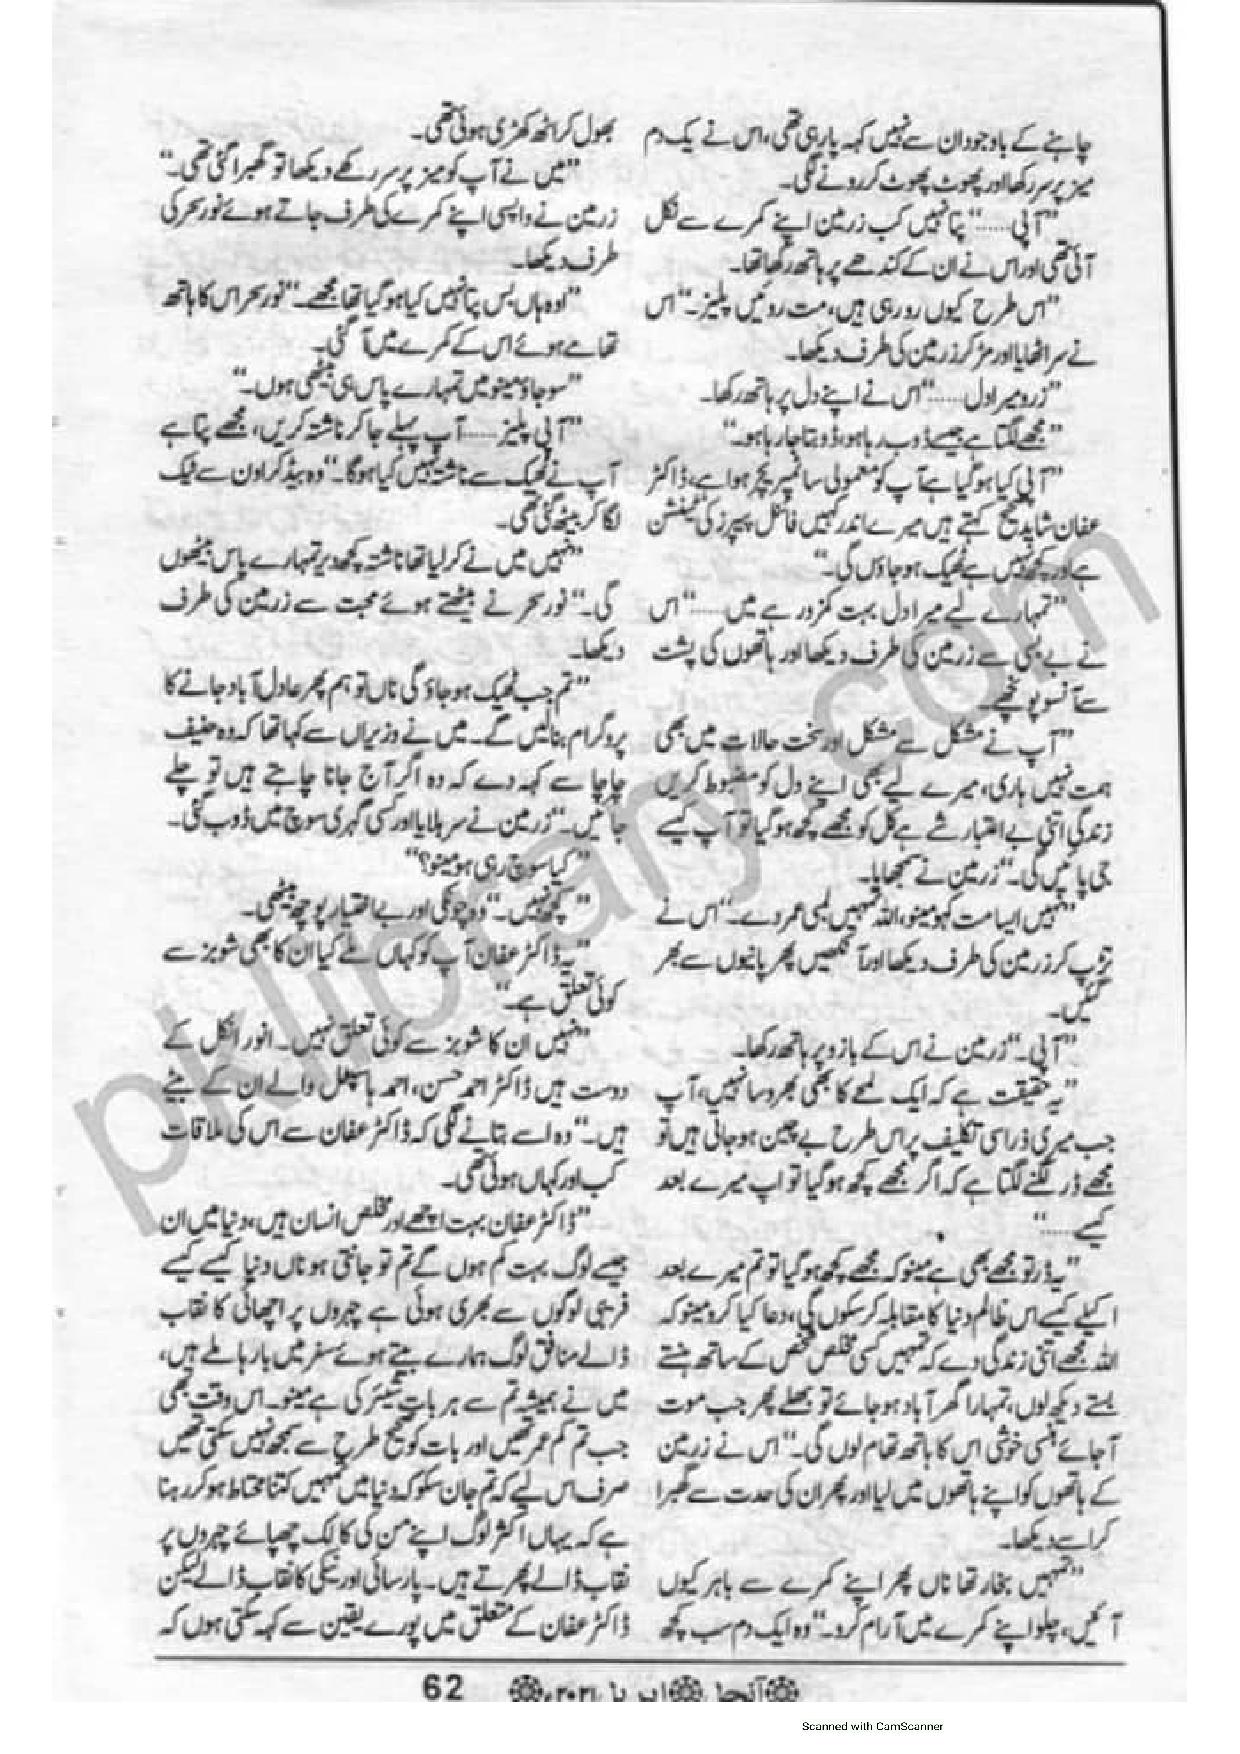 چاہنے کے باوجود ان سے نہیں کہہ پا رہی تھی، اس نے یک دم
میز پر سر رکھا اور پھوٹ پھوٹ کر رونے لگی۔
”آپی......“ پتا نہیں کب زرمین اپنے کمرے سے نکل
آئی تھی اور اس نے ان کے کندھے پر ہاتھ رکھا تھا۔
”اس طرح کیوں رو رہی ہیں، مت روئیں پلیز۔“ اس
نے سر اٹھایا اور مڑ کر زرمین کی طرف دیکھا۔
”زرو میرا دل......“ اس نے اپنے دل پر ہاتھ رکھا۔
”مجھے لگتا ہے جیسے ڈوب رہا ہو، ڈوبتا جا رہا ہو۔“
”آپی کیا ہو گیا ہے آپ کو معمولی سا ٹمپریچر ہوا ہے، ڈاکٹر
عفان شاید صحیح کہتے ہیں میرے اندر کہیں فائنل پیپرز کی ٹینشن
ہے اور کچھ نہیں ہے ٹھیک ہو جاؤں گی۔“
”تمہارے لیے میرا دل بہت کمزور ہے میں......“ اس
نے بے بسی سے زرمین کی طرف دیکھا اور ہاتھوں کی پشت
سے آنسو پونچھے۔
”آپ نے مشکل سے مشکل اور سخت حالات میں بھی
ہمت نہیں ہاری، میرے لیے بھی اپنے دل کو مضبوط کریں
زندگی اتنی بے اعتبار شے ہے کل کو مجھے کچھ ہو گیا تو آپ کیسے
جی پائیں گی۔“ زرمین نے سمجھایا۔
”نہیں ایسا مت کہو مینو، اللہ تمہیں لمبی عمر دے۔“ اس نے
تڑپ کر زرمین کی طرف دیکھا اور آنکھیں پھر پانیوں سے بھر
گئیں۔
”آپی۔“ زرمین نے اس کے بازو پر ہاتھ رکھا۔
”یہ حقیقت ہے کہ ایک لمحے کا بھی بھروسا نہیں، آپ
جب میری ذرا سی تکلیف پر اس طرح بے چین ہو جاتی ہیں تو
مجھے ڈر لگنے لگتا ہے کہ اگر مجھے کچھ ہو گیا تو آپ میرے بعد
کیسے......“
”یہ ڈر تو مجھے بھی ہے مینو کہ مجھے کچھ ہو گیا تو تم میرے بعد
اکیلے کیسے اس ظالم دنیا کا مقابلہ کر سکوں گی، دعا کیا کرو مینو کہ
اللہ مجھے اتنی زندگی دے کہ تمہیں کسی مخلص شخص کے ساتھ ہنستے
بستے دیکھ لوں، تمہارا گھر آباد ہو جائے تو بھلے پھر جب موت
آ جائے ہنسی خوشی اس کا ہاتھ تھام لوں گی۔“ اس نے زرمین
کے ہاتھوں کو اپنے ہاتھوں میں لیا اور پھر ان کی حدت سے گھبرا
کر اسے دیکھا۔
”تمہیں بخار تھا ناں پھر اپنے کمرے سے باہر کیوں
آ گئیں، چلو اپنے کمرے میں آرام کرو۔“ وہ ایک دم سب کچھ
بھول کر اٹھ کھڑی ہوئی تھی۔
”میں نے آپ کو میز پر سر رکھے دیکھا تو گھبرا گئی تھی۔“
زرمین نے واپس اپنے کمرے کی طرف جاتے ہوئے نور سحر کی
طرف دیکھا۔
”اوہ ہاں بس پتا نہیں کیا ہو گیا تھا مجھے۔“ نور سحر اس کا ہاتھ
تھامے ہوئے اس کے کمرے میں آ گئی۔
”سو جاؤ مینو میں تمہارے پاس ہی بیٹھی ہوں۔“
”آپی پلیز...... آپ پہلے جا کر ناشتہ کریں، مجھے پتا ہے
آپ نے ٹھیک سے ناشتہ نہیں کیا ہوگا۔“ وہ بیڈ کراؤن سے ٹیک
لگا کر بیٹھ گئی تھی۔
”نہیں میں نے کر لیا تھا ناشتہ کچھ دیر تمہارے پاس بیٹھوں
گی۔“ نور سحر نے بیٹھتے ہوئے محبت سے زرمین کی طرف
دیکھا۔
”تم جب ٹھیک ہو جاؤ گی ناں تو ہم پھر عادل آباد جانے کا
پروگرام بنا لیں گے۔ میں نے وزیراں سے کہا تھا کہ وہ حنیف
چاچا سے کہہ دے کہ وہ اگر آج جانا چاہتے ہیں تو چلے
جائیں۔“ زرمین نے سر ہلایا اور کسی گہری سوچ میں ڈوب گئی۔
”کیا سوچ رہی ہو مینو؟“
”کچھ نہیں۔“ وہ چونکی اور بے اختیار پوچھ بیٹھی۔
”یہ ڈاکٹر عفان آپ کو کہاں ملے کیا ان کا بھی شوبز سے
کوئی تعلق ہے۔“
”نہیں ان کا شوبز سے کوئی تعلق نہیں۔ انور انکل کے
دوست ہیں ڈاکٹر احمد حسن، احمد ہاسپٹل والے ان کے بیٹے
ہیں۔“ وہ اسے بتانے لگی کہ ڈاکٹر عفان سے اس کی ملاقات
کب اور کہاں ہوئی تھی۔
”ڈاکٹر عفان بہت اچھے اور مخلص انسان ہیں، دنیا میں ان
جیسے لوگ بہت کم ہوں گے تم تو جانتی ہو ناں دنیا کیسے کیسے
فریبی لوگوں سے بھری ہوئی ہے چہروں پر اچھائی کا نقاب
ڈالے منافق لوگ ہمارے بیتے ہوئے سفر میں بارہا ملے ہیں،
میں نے ہمیشہ تم سے ہر بات شیئر کی ہے مینو۔ اس وقت بھی
جب تم کم عمر تھیں اور بات کو صحیح طرح سے سمجھ نہیں سکتی تھیں
صرف اس لیے کہ تم جان سکو کہ دنیا میں تمہیں کتنا محتاط ہو کر رہنا
ہے کہ یہاں اکثر لوگ اپنے من کی کالک چھپائے چہروں پر
نقاب ڈالے پھرتے ہیں۔ پارسائی اور نیکی کا نقاب ڈالے لیکن
ڈاکٹر عفان کے متعلق میں پورے یقین سے کہہ سکتی ہوں کہ
62
pklibrary.com
Scanned with CamScanner